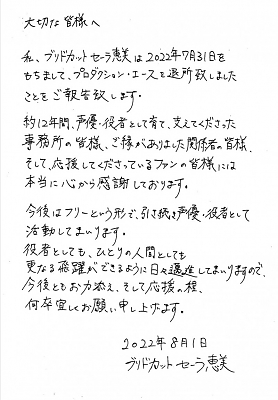 大切な皆様へ
私、ブリドカットセーラ恵美は2022年7月31日を
もちまして、プロダクション・エースを退所致しました
ことをご報告致します。
約12年間、声優・役者として育て、支えてくださった
事務所の皆様、ご縁がありました関係者の皆様、
そして、応援してくださっているファンの皆様には
本当に心から感謝しております。
今後はフリーという形で、引き続き声優・役者として
活動してまいります。
役者としても、ひとりの人間としても
更なる飛躍ができるように日々邁進してまいりますので、
今後ともお力添え、そして応援の程、
何卒宜しくお願い申し上げます。
2022年8月1日
ブリドカットセーラ恵美